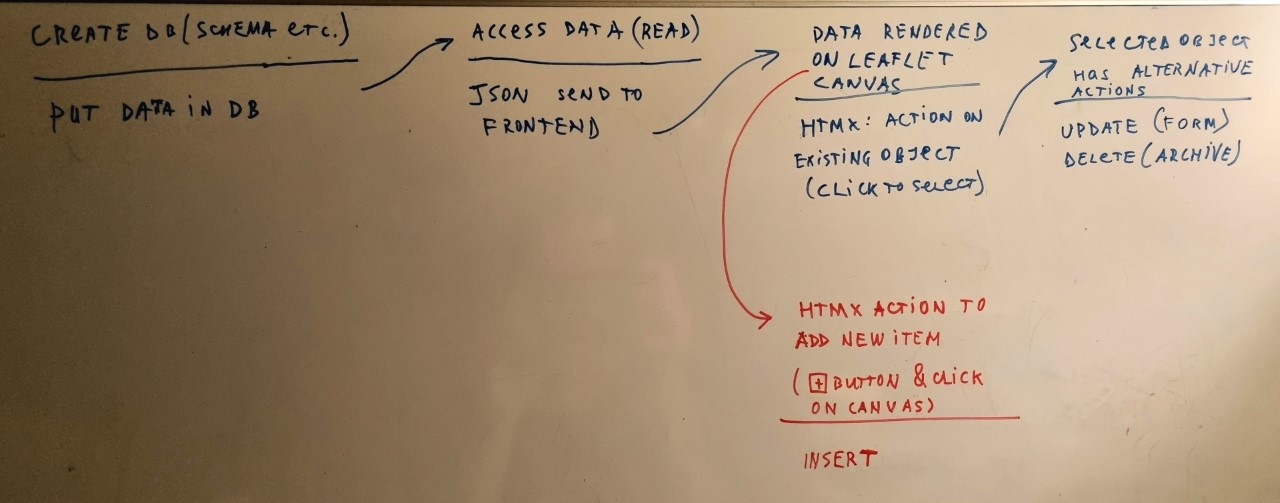 CREATE DB (SCHEMA etc.)
PUT DATA IN DB
ACCESS DATA (READ)
JSON SEND TO
FRONTEND
DATA RENDERED
ON LEAFLET
CANVAS
HTMX: ACTION ON
EXISTING OBJECT
(CLICK TO SELECT)
SELECTED OBJECT
HAS ALTERNATIVE
ACTIONS
UPDATE (FORM)
DELETE (ARCHIVE)
HTMX ACTION TO
ADD NEW ITEM
(+ BUTTON & CLICK
ON CANVAS)
INSERT